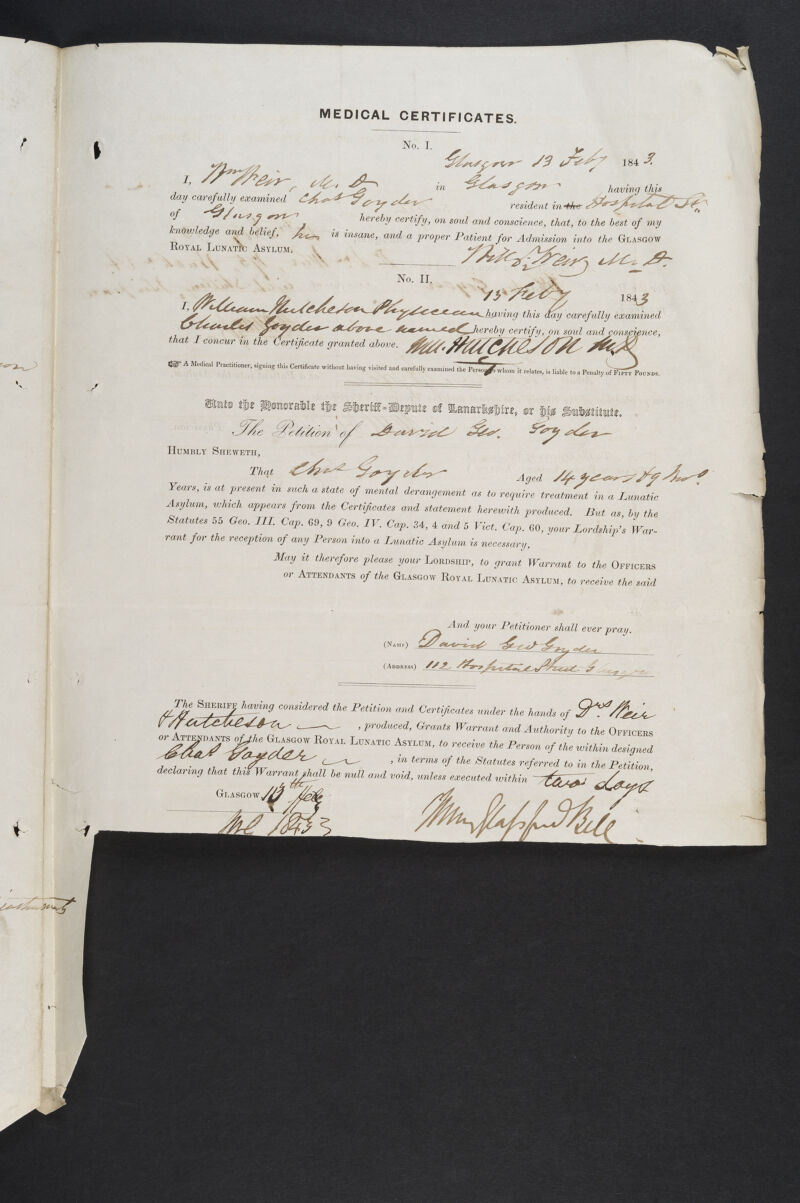 MEDICAL CERTIFICATES.
No. I.
Glasgow 13 Feby 1843.
I, Wm Weir, M. D in Glasgow having this
day carefully examined Chas Goyder resident in the Hospital St.
of Glasgow hereby certify, on soul and conscience, that, to the best of my
knowledge and belief, he is insane, and a proper Patient for Admission into the GLASGOW
ROYAL LUNATIC ASYLUM.
Weir M. D.
No. II.
13 Feby 1843
I, William Hutcheson Physician having this day carefully examined
Charles Goyder above named hereby certify, on soul and conscience,
that I concur in the Certificate granted above. Wm. Hutcheson M.D
☞ A Medical Practitioner, signing this Certificate without having visited and carefully examined the Person to whom it relates, is liable to a Penalty of FIFTY POUNDS.
Unto the Honorable the Sheriff-Depute of Lanarkshire, or his Substitute.
The Petition of David Geo. Goyder
HUMBLY SHEWETH,
That Chas Goyder Aged 14 years & 9 Mos.
Years, is at present in such a state of mental derangement as to require treatment in a Lunatic
Asylum, which appears from the Certificates and statement herewith produced. But as, by the
Statutes 55 Geo. III. Cap. 69, 9 Geo. IV. Cap. 34, 4 and 5 Vict. Cap. 60, your Lordship's War-
rant for the reception of any Person into a Lunatic Asylum is necessary,
May it therefore please your LORDSHIP, to grant Warrant to the OFFICERS
or ATTENDANTS of the GLASGOW ROYAL LUNATIC ASYLUM, to receive the said
And your Petitioner shall ever pray.
(NAME) David Geo Goyder
(ADDRESS) 112 Hospital Street Glasgow
The SHERIFF having considered the Petition and Certificates under the hands of Drs. Weir
& Hutcheson , produced, Grants Warrant and Authority to the OFFICERS
or ATTENDANTS of the GLASGOW ROYAL LUNATIC ASYLUM, to receive the Person of the within designed
Chas Goyder , in terms of the Statutes referred to in the Petition,
declaring that this Warrant shall be null and void, unless executed within two days
GLASGOW, 13th Feby
1843
Glassford Bell